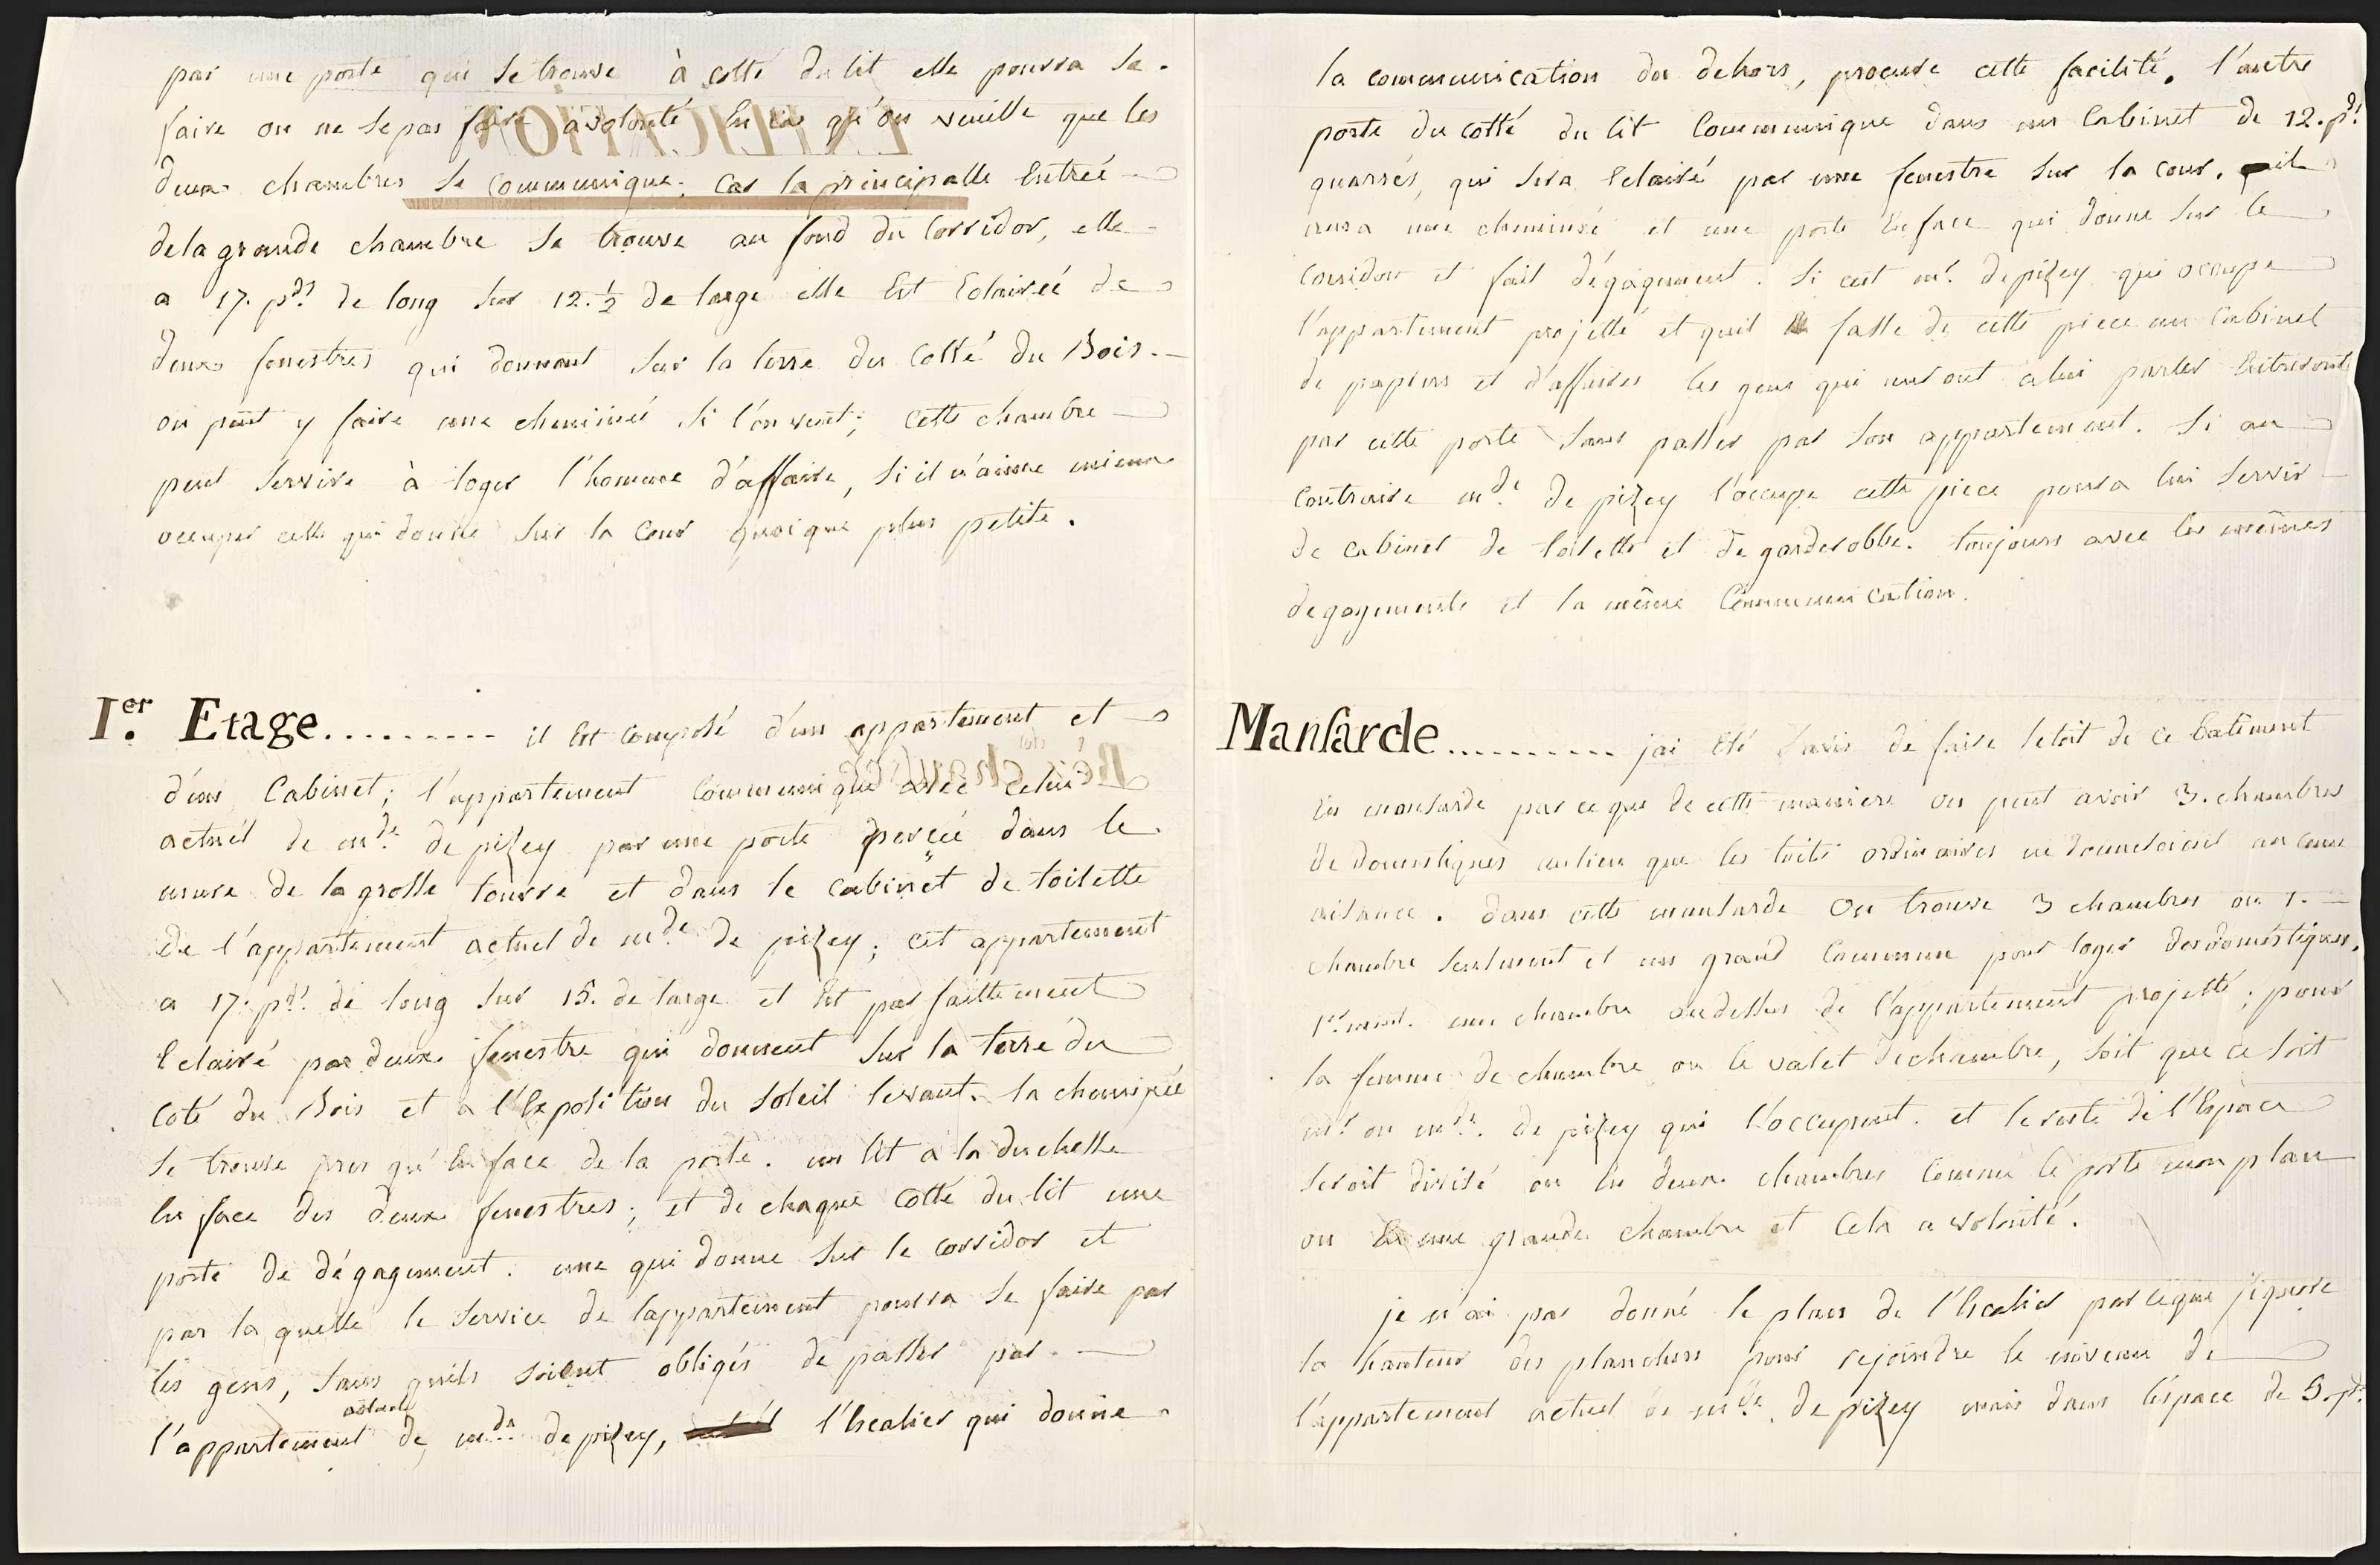 par une porte qui se trouve à cotté du lit elle pourra se.
faire ou ne se pas faire avolonté En cas qu'on veuille que les
deux chambres se communique; car la principalle Entreé
dela grande chambre se trouve au fond du Corridor, elle
a 17. pds de long sur 12. 1/2 de large elle Est Eclaireé de
deux fenestres qui donnent sur la terre du Cotté du Bois.
on peut y faire une cheminée si l'on veut; cette chambre
peut servire à loger l'homme d'affaire, si il n'aime mieux
occuper celle qui donne sur la cour quoique plus petite.
Ier. Etage.......... il Est composé d'un appartement et
d'un Cabinet; l'appartement communique avec celui
actuel de mde. de pizey par une porte perceé dans le
mure de la grosse tourre et dans le cabinet de toilette
De l'appartement actuel de mde. de pizey; cet appartement
a 17. pds. de long sur 15. de large et Est parfaittement
Eclairé par deux fenestre qui donnent sur la terre du
coté du Bois et a l'Exposition du soleil levant. la cheminée
se trouve pres qu'En face de la porte. un lit a la duchesse
En face des deux fenestres; et de chaque cotté du lit une
porte de dégagement. une qui donne sur le corridor et
par la quelle le service de lappartement pourra se faire par
les gens, sans quils soient obligés de passer par
actuel
l'appartement de mde. de pizey, l'Escalier qui donne
la communication du dehors, procure cette facilité. l'autre
porte du cotté du lit Communique dans un Cabinet de 12. pds.
quarrés, qui sera Eclairé par une fenestre sur la cour. il
aura une cheminée et une porte En face qui donne sur le
corridor et fait dégagement. si cest mr. de pizey qui occupe
l'appartement projetté et quil fasse de cette piece un Cabinet
de papiers et d'affaires les gens qui auront alui parler Entreront
par cette porte sans passer par son appartement. si au
contraire mde. de pizey l'occupe cette piece poura lui servir
de cabinet de toilette et de garderobbe. toujours avec les mêmes
degagements et la même Communication.
Mansarde.......... jai Eté davis de faire letoit de ce batiment
En mansarde parceque de cette maniere on peut avoir 3. chambres
de domestiques aulieu que les toits ordinaires ne donneroient aucune
aisance. dans cette mansarde On trouve 3 chambres ou 1.
chambre seulement et un grand commun pour loger des domestiques.
1erment. une chambre audessus de l'appartement projetté; pour
la femme de chambre ou le valet dechambre, soit que ce soit
mr. ou mde. de pizey qui l'occupent. et le reste de l'Espace
seroit divisé ou En deux chambres comme le porte mon plan
ou En une grande chambre et cela a volonté.
je n'ai pas donné le plan de l'Escalier parceque j'ignore
la hauteur des planchers pour rejoindre le niveau de
l'appartement actuel de mde. de pizey mais dans l'espace de 5. pds